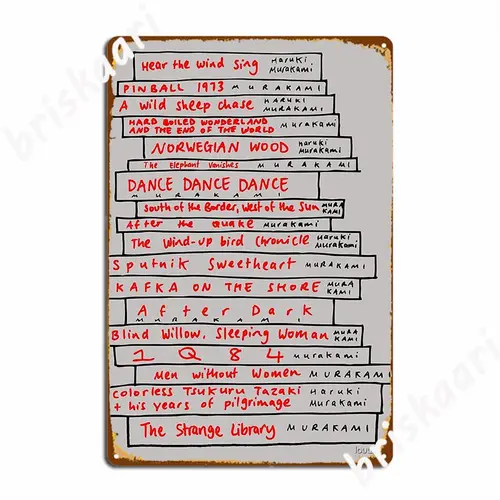 Hear the wind Sing Haruki
Murakami
PINBALL 1973 MURAKAMI
A wild sheep chase HARUKI
MURAKAMI
HARD BOILED WONDERLAND
AND THE END OF THE WORLD MURAKAMI
NORWEGIAN WOOD Haruki
Murakami
The Elephant Vanishes MURAKAMI
DANCE DANCE DANCE
MURAKAMI
South of the Border, West of the Sun MURA
KAMI
After the Quake MURAKAMI
The Wind-up bird Chronicle Haruki
Murakami
Sputnik Sweetheart MURAKAMI
KAFKA ON THE SHORE MURA
KAMI
After Dark
MURAKAMI
Blind Willow, Sleeping Woman MURA
KAMI
1Q84 murakami
Men without Women MURAKAMI
Colorless Tsukuru Tazaki Haruki
+ his years of pilgrimage Murakami
The Strange Library MURAKAMI
briskaari
briskaari
briskaari